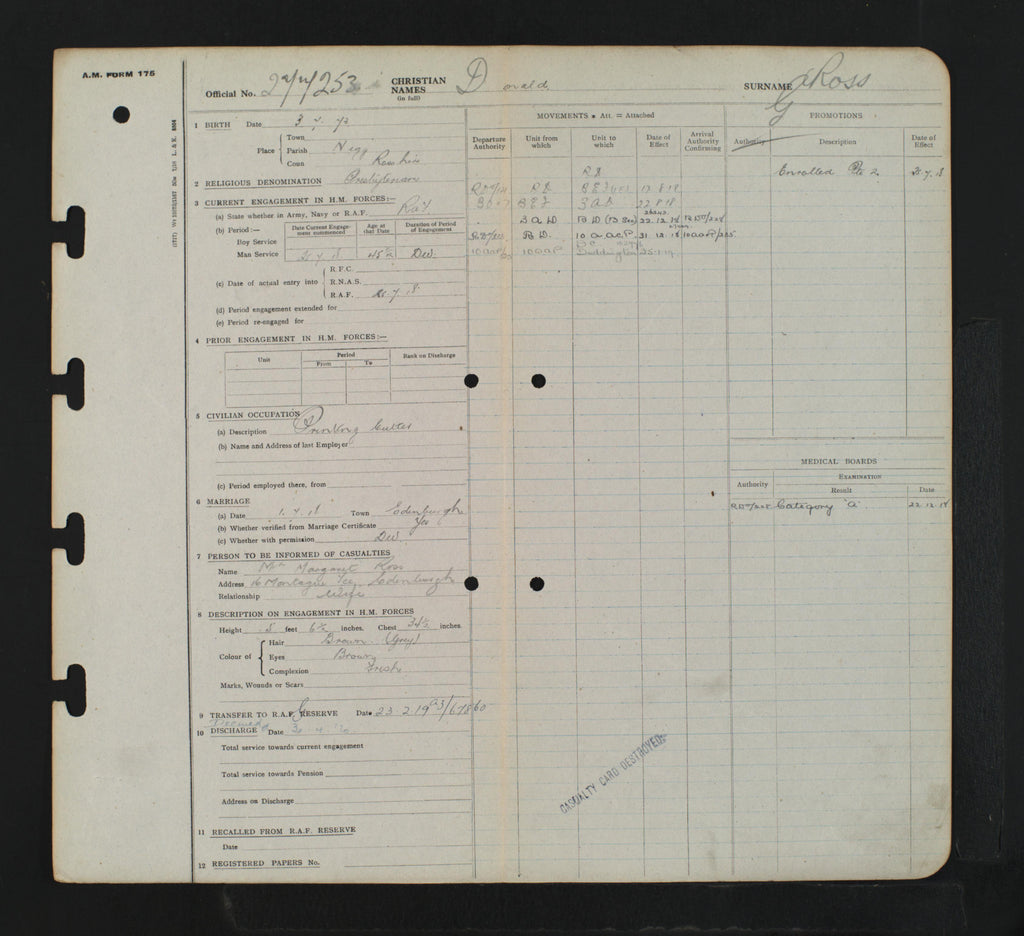 A.M. FORM 175
Official No. 277253 CHRISTIAN NAMES (in full) Donald SURNAME Ross
G
1 BIRTH Date 3. 4. 73
Place Town
Parish Nigg
Coun Rosshire
2 RELIGIOUS DENOMINATION Presbyterian
3 CURRENT ENGAGEMENT IN H.M. FORCES:—
(a) State whether in Army, Navy or R.A.F. Raf
(b) Period:— Date Current Engagement commenced Age at that Date Duration of Period of Engagement
Boy Service
Man Service 7. 18 45 Dw.
(c) Date of actual entry into R.F.C.
R.N.A.S.
R.A.F. 7. 18
(d) Period engagement extended for
(e) Period re-engaged for
4 PRIOR ENGAGEMENT IN H.M. FORCES:—
Unit Period Rank on Discharge
From To
5 CIVILIAN OCCUPATION
(a) Description Printing Cutter
(b) Name and Address of last Employer
(c) Period employed there, from
6 MARRIAGE
(a) Date 1. 7. 18 Town Edinburgh
(b) Whether verified from Marriage Certificate Yes
(c) Whether with permission Dw.
7 PERSON TO BE INFORMED OF CASUALTIES
Name Mrs Margaret Ross
Address 16 Montague Ter. Edinburgh
Relationship Wife
8 DESCRIPTION ON ENGAGEMENT IN H.M. FORCES
Height 5 feet 6½ inches. Chest 34½ inches.
Colour of Hair Brown (Grey)
Eyes Brown
Complexion Fresh
Marks, Wounds or Scars
9 TRANSFER TO R.A.F. G RESERVE Date 23. 2. 19 A3/67860
Deemed
10 DISCHARGE Date 30. 4. 20
Total service towards current engagement
Total service towards Pension
Address on Discharge
11 RECALLED FROM R.A.F. RESERVE
Date
12 REGISTERED PAPERS No.
MOVEMENTS * Att. = Attached
Departure Authority Unit from which Unit to which Date of Effect Arrival Authority Confirming
RD
RD BEF 13 8 18
BEF 3 A D 22 8 18
3 A D 22. 12. 18
RD. 10 A. A.P. 31. 12. 18 10AAP/235
10AAP 10AAP 25. 1. 19
PROMOTIONS
Authority Description Date of Effect
Enrolled Pte 2. 7. 18
MEDICAL BOARDS
Authority EXAMINATION
Result Date
Category "A" 22 12. 18
CASUALTY CARD DESTROYED.